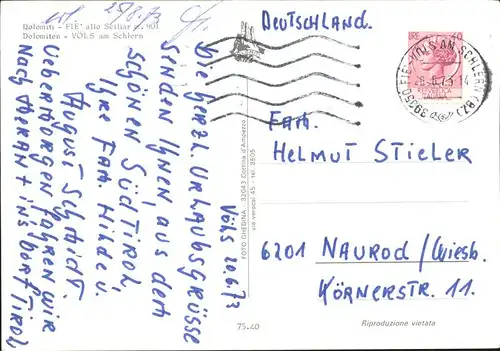 Dolomiti - FIE' allo Sciliar m. 901
Dolomiten - VÖLS am Schlern
25/6.73
Völs 20.6.73
Die herzl. Urlaubsgrüsse
senden Ihnen aus dem
schönen Südtirol,
Ihre Fam. Hilde u.
August Schmidt.
Uebermorgen fahren wir
nach Meran + ins Dorf Tirol
FOTO GHEDINA - 32043 Cortina d'Ampezzo
via verocai 45 - tel. 3505
75-40
DEUTSCHLAND.
39050 FIE'-VÖLS AM SCHLERN (BZ)
Fam.
HELMUT STIELER
6201 NAUROD/Wiesb.
KÖRNERSTR. 11.
Riproduzione vietata